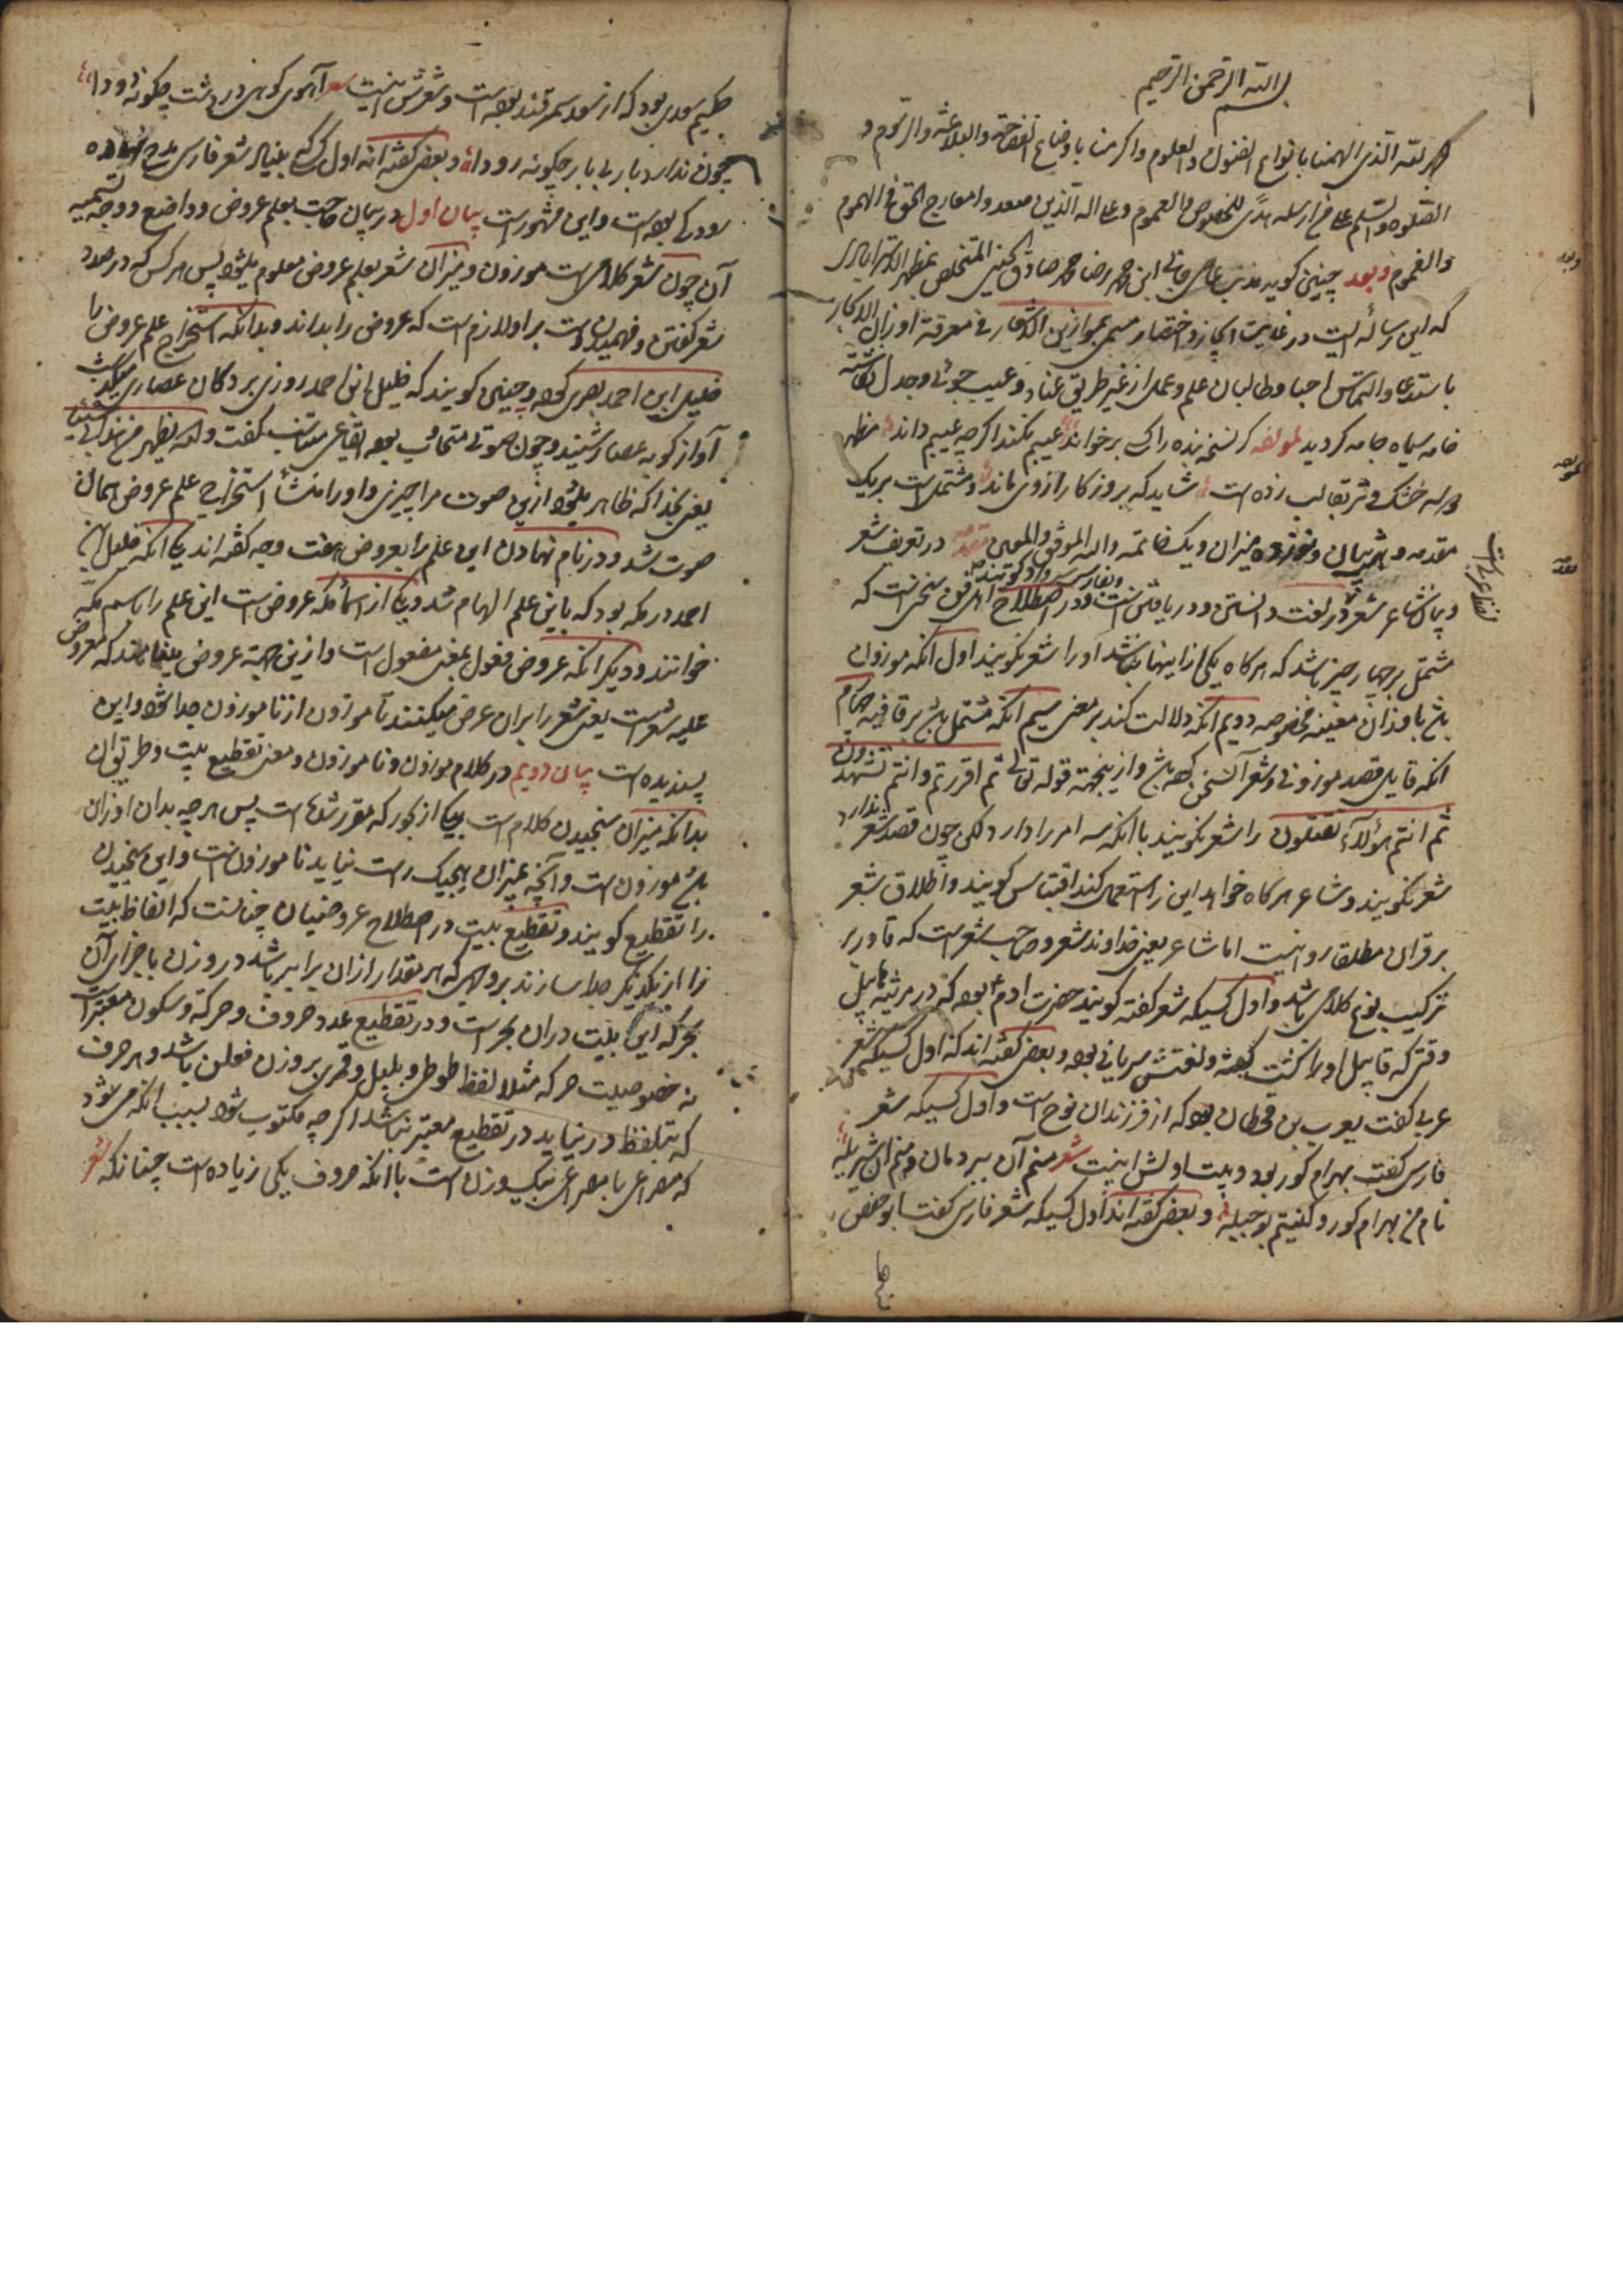 بسم الله الرحمن الرحیم
الحمد لله الذی الهمنا بانواع الفنون والعلوم و اکرمنا باوضاع الفصاحة والبلاغة والرسوم و
الصلوة والسلم علی من ارسله هدی للخصوص والعموم و علی اله الذین صعدوا معارج الحق فی الهموم
والغموم و بعد چنین کوید مذنب ابن محمد رضا محمد صادق المتخلص بمظهر
که این رساله ایست در غایت ایجاز و اختصار مسمی بموازین الاشعار فی معرفة اوزان الاذکار
باستدعا و التماس احبا و طالبان علم و عمل از غیر طریق عناد و عیب جوئی و جدل
خامه سیاه جامه کردید لمولفه کر نسخه بنده را کسی برخواند عیبم نکند اکرچه عیبم داند مظهر
خشک و تر بقالب زده است شاید که بروزکار از وی ماند و مشتملست بر یک
مقدمه و بیان و نوزده میزان و یک خاتمه والله الموفق والمعین مقدمه در تعریف شعر
و بیان شاعر شعر در لغت دانستن و دریافتن است و در اصطلاح اهل فن سخنی است که
مشتمل بر چهار چیز باشد که هرکاه یکی از اینها نباشد او را شعر نکویند اول انکه موزون
باشد باوزان معینه مخصوصه دویم انکه دلالت کند بر معنی سیم انکه مشتمل باشد بر قافیه چهارم
انکه قایل قصد موزونی و شعر آن سخن کرده باشد و از اینجهة قوله تعالی ثم اقررتم وانتم تشهدون
ثم انتم هؤلاء تقتلون را شعر نکویند با انکه سه امر را دارد لکن چون قصد شعر ندارد
شعر نکویند و شاعر هرکاه خواهد این را استعمال کند اقتباس کویند و اطلاق شعر
بر قران مطلقا روا نیست اما شاعر یعنی خداوند شعر و صاحب شعر است که قادر بر
ترکیب نوع کلامی باشد و اول کسیکه شعر کفته کویند حضرت ادم بوده که در مرثیه هابیل
وقتی که قابیل او را کشت کفته و لغتش سریانی بوده و بعضی کفته اند که اول کسیکه شعر
عربی کفت یعرب بن قحطان بوده که از فرزندان نوح است و اول کسیکه شعر
فارسی کفت بهرام کور بود و بیت اولش اینست شعر منم آن ببر دمان و منم آن شیر یله
نام من بهرام کور و کنیتم بوجبله و بعضی کفته اند اول کسیکه شعر فارسی کفت ابو حفص
حکیم سعدی بود که از سعد سمرقند بوده است و شعرش اینست شعر آهوی کوهی در دشت چکونه دودا
چون ندارد یار بی یار چکونه رودا و بعضی کفته اند اول کسی که بنیاد شعر فارسی نهاده
رودکی بوده است و این مشهور است بیان اول در بیان حاجت بعلم عروض و واضع و وجه تسمیه
آن چون شعر کلامی است موزون و میزان شعر بعلم عروض معلوم میشود پس هرکس که در صدد
شعر کفتن و فهمیدن است بر او لازم است که عروض را بداند و بدانکه استخراج علم عروض را
خلیل ابن احمد بصری کرده و چنین کویند که خلیل ابن احمد روزی بر دکان عصاری میکذشت
آواز کوبه عصار شنید و چون صوتی متجاوب بوده ایقاعی متناسب کفت والله یظهر من هذا شیئا
یعنی بخدا که ظاهر میشود از این صوت مرا چیزی و او را منشأ استخراج علم عروض همان
صوت شد و در نام نهادن این علم را بعروض هفت وجه کفته اند یکی انکه خلیل ابن
احمد در مکه بود که باین علم الهام شد و یکی از اسماء مکه عروض است این علم را باسم مکه
خواندند و دیکر انکه عروض فعول بمعنی مفعول است و از این جهة عروض مینامند که معروض
علیه شعر است یعنی شعر را بر ان عرض میکنند تا موزون از ناموزون جدا شود و این
پسندیده است بیان دویم در کلام موزون و ناموزون و معنی تقطیع بیت و طریق ان
بدانکه میزان سنجیدن کلام است بیکی از بحور که مقرر شده است پس هرچه بدان اوزان
باشد موزون است و آنچه بمیزان هیچیک راست نیاید ناموزونست و این سنجیدن
را تقطیع کویند و تقطیع بیت در اصطلاح عروضیان چنانست که الفاظ بیت
را از یکدیکر جدا سازند بر وجهی که هر مقدار از ان برابر باشد در وزن باجزای آن
بحر که این بیت در ان بحر است و در تقطیع عدد حروف و حرکة و سکون معتبر است
نه خصوصیت حرکه مثلا لفظ طوطی و بلبل و قمری بر وزن فعلن باشد و هر حرف
که بتلفظ در نیاید در تقطیع معتبر نباشد اکرچه مکتوب شود بسبب انکه می شود
که مصراعی با مصراعی بیک وزن است با انکه حروف یکی زیاده است چنانکه شعر